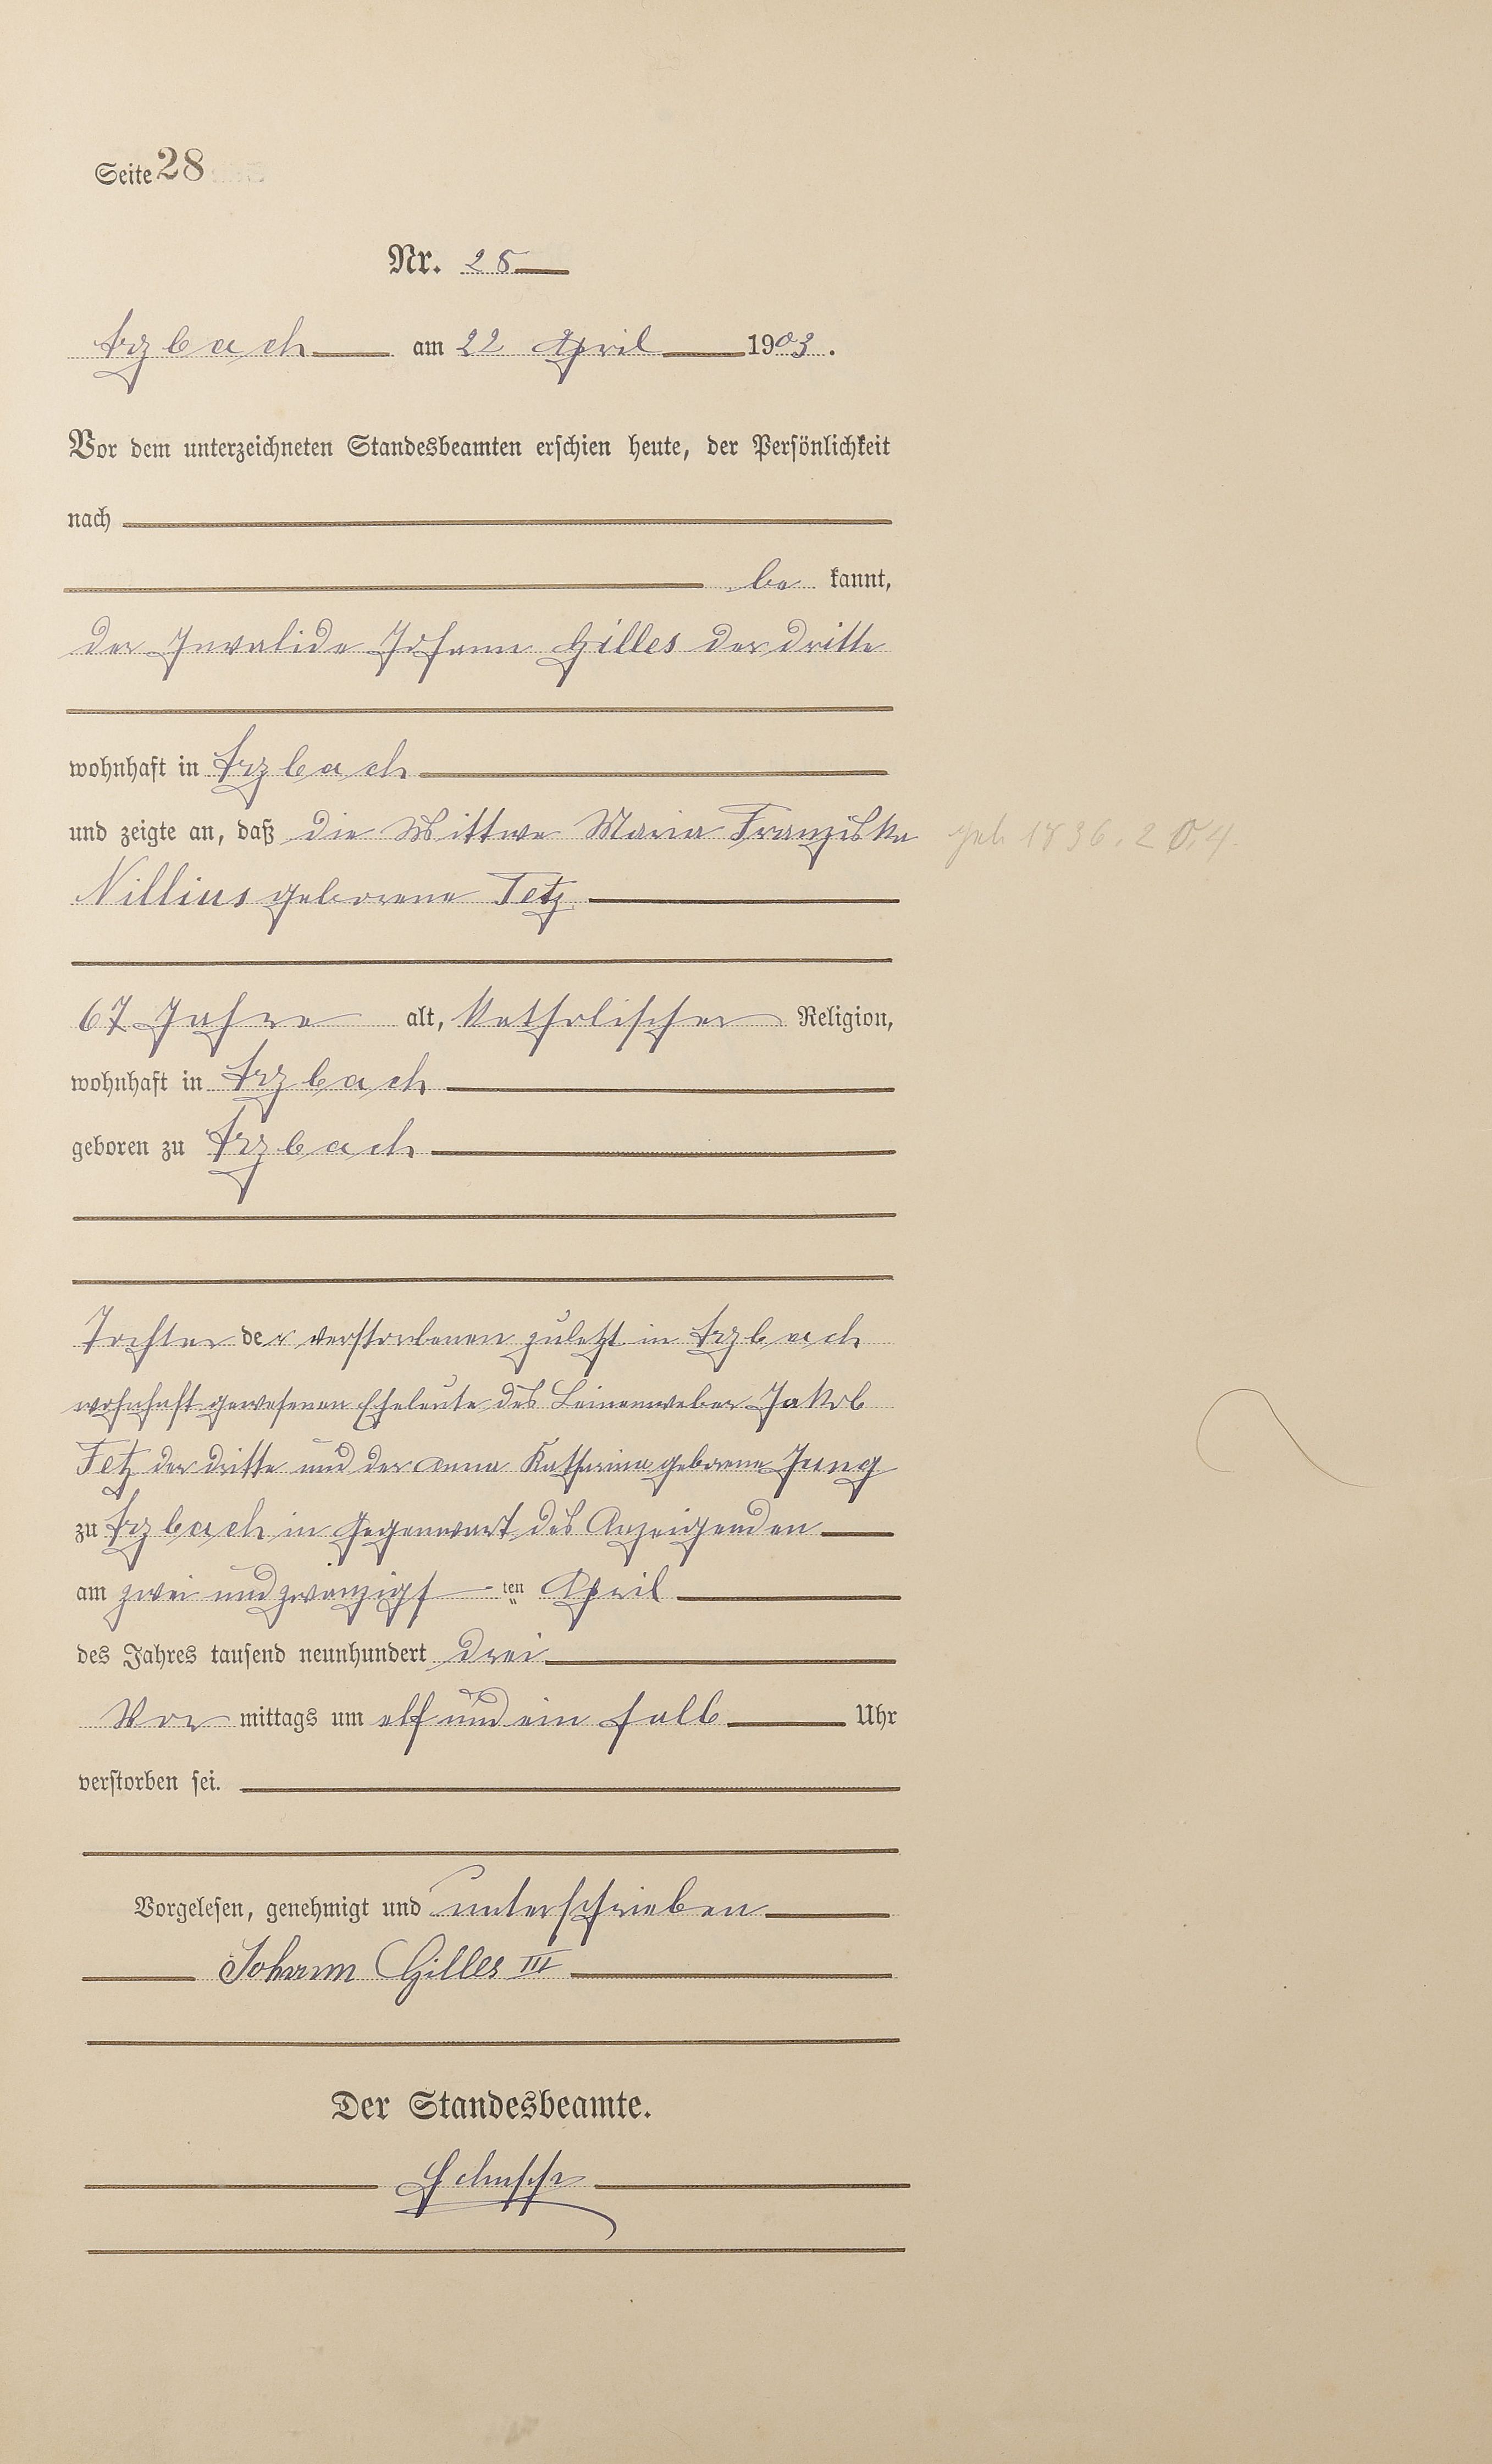 Seite 28
Nr. 28
Arzbach am 22 April 1903.
Vor dem unterzeichneten Standesbeamten erschien heute, der Persönlichkeit
nach
be kannt,
der Invalide Johann Gilles der dritte
wohnhaft in Arzbach
und zeigte an, daß die Wittwe Maria Franziska geb 1836.
Nillius geborene Fetz
67 Jahre alt, katholischer Religion,
wohnhaft in Arzbach
geboren zu Arzbach
Tochter der verstorbenen zuletzt in Arzbach
wohnhaft gewesenen Eheleute des Leinenweber Jakob
Fetz der dritte und der Anna Katharina geborene Jung
zu Arzbach in Gegenwart des Anzeigenden
am zwei und zwanzigs ten April
des Jahres tausend neunhundert drei
Vor mittags um elf und ein halb Uhr
verstorben sei.
Vorgelesen, genehmigt und unterschrieben
Johann Gilles III
Der Standesbeamte.